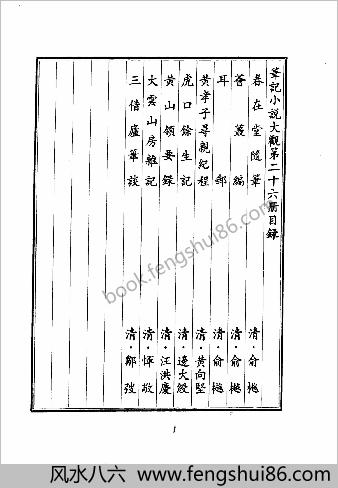 筆記小説大觀第二十六册目錄
春在堂隨筆 清·俞樾
薈蕞編 清·俞樾
耳郵 清·俞樾
黃孝子尋親紀程 清·黃向堅
虎口餘生記 清·邊大綬
黃山領要錄 清·汪洪慶
大雲山房雜記 清·惲敬
三借廬筆談 清·鄒弢
1
book.fengshui86.com
风水八六 www.fengshui86.com